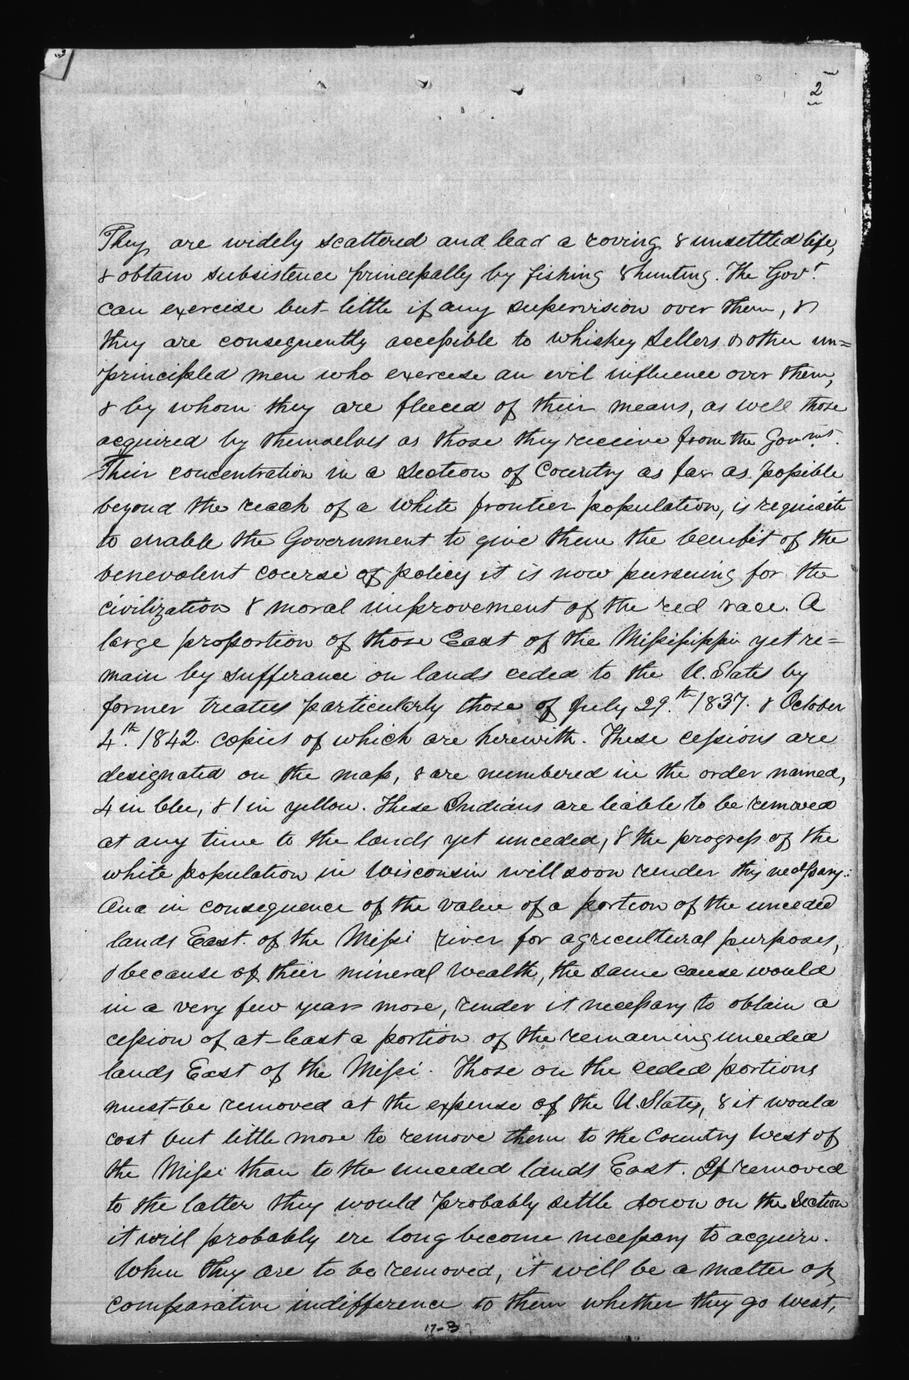 2
They are widely scattered and lead a roving & unsettled life,
& obtain subsistence principally by fishing & hunting. The Govt.
can exercise but little if any supervision over them, &
they are consequently accessible to whiskey sellers & other un=
principled men who exercise an evil influence over them,
& by whom they are fleeced of their means, as well those
acquired by themselves as those they receive from the Govmnt.
Their concentration in a section of Country as far as possible
beyond the reach of a white frontier population, is requisite
to enable the Government to give them the benefit of the
benevolent course of policy it is now pursuing for the
civilization & moral improvement of the red race. A
large proportion of those East of the Mississippi yet re=
main by sufferance on lands ceded to the U. States by
former treaties particularly those of July 29th. 1837. & October
4th. 1842. copies of which are herewith. These cessions are
designated on the map, & are numbered in the order named,
4 in blue, & 1 in yellow. These Indians are liable to be removed
at any time to the lands yet unceded, & the progress of the
white population in Wisconsin will soon render this necessary:
And in consequence of the value of a portion of the unceded
lands East. of the Missi river for agricultural purposes,
& because of their mineral wealth, the same cause would
in a very few years more, render it necessary to obtain a
cession of at-least a portion of the remaining unceded
lands East of the Missi. Those on the ceded portions
must-be removed at the expense of the U. States, & it would
cost but little more to remove them to the Country West of
the Missi than to the unceded lands East. If removed
to the latter they would probably settle down on the Section
it will probably ere long become necessary to acquire.
When they are to be removed, it will be a matter of
comparative indifference to them whether they go west,
17-3